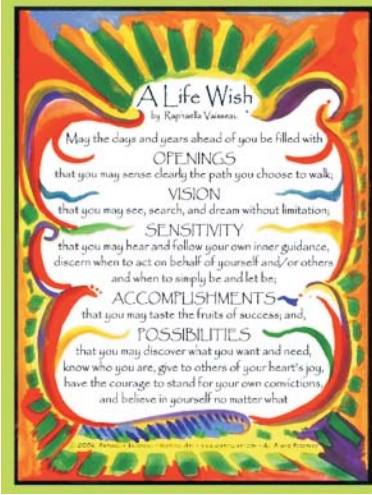 A Life Wish
by Raphaella Vaisseau
May the days and years ahead of you be filled with
OPENINGS
that you may sense clearly the path you choose to walk;
VISION
that you may see, search, and dream without limitation;
SENSITIVITY
that you may hear and follow your own inner guidance,
discern when to act on behalf of yourself and/or others
and when to simply be and let be;
ACCOMPLISHMENTS
that you may taste the fruits of success; and,
POSSIBILITIES
that you may discover what you want and need,
know who you are, give to others of your heart's joy,
have the courage to stand for your own convictions,
and believe in yourself no matter what